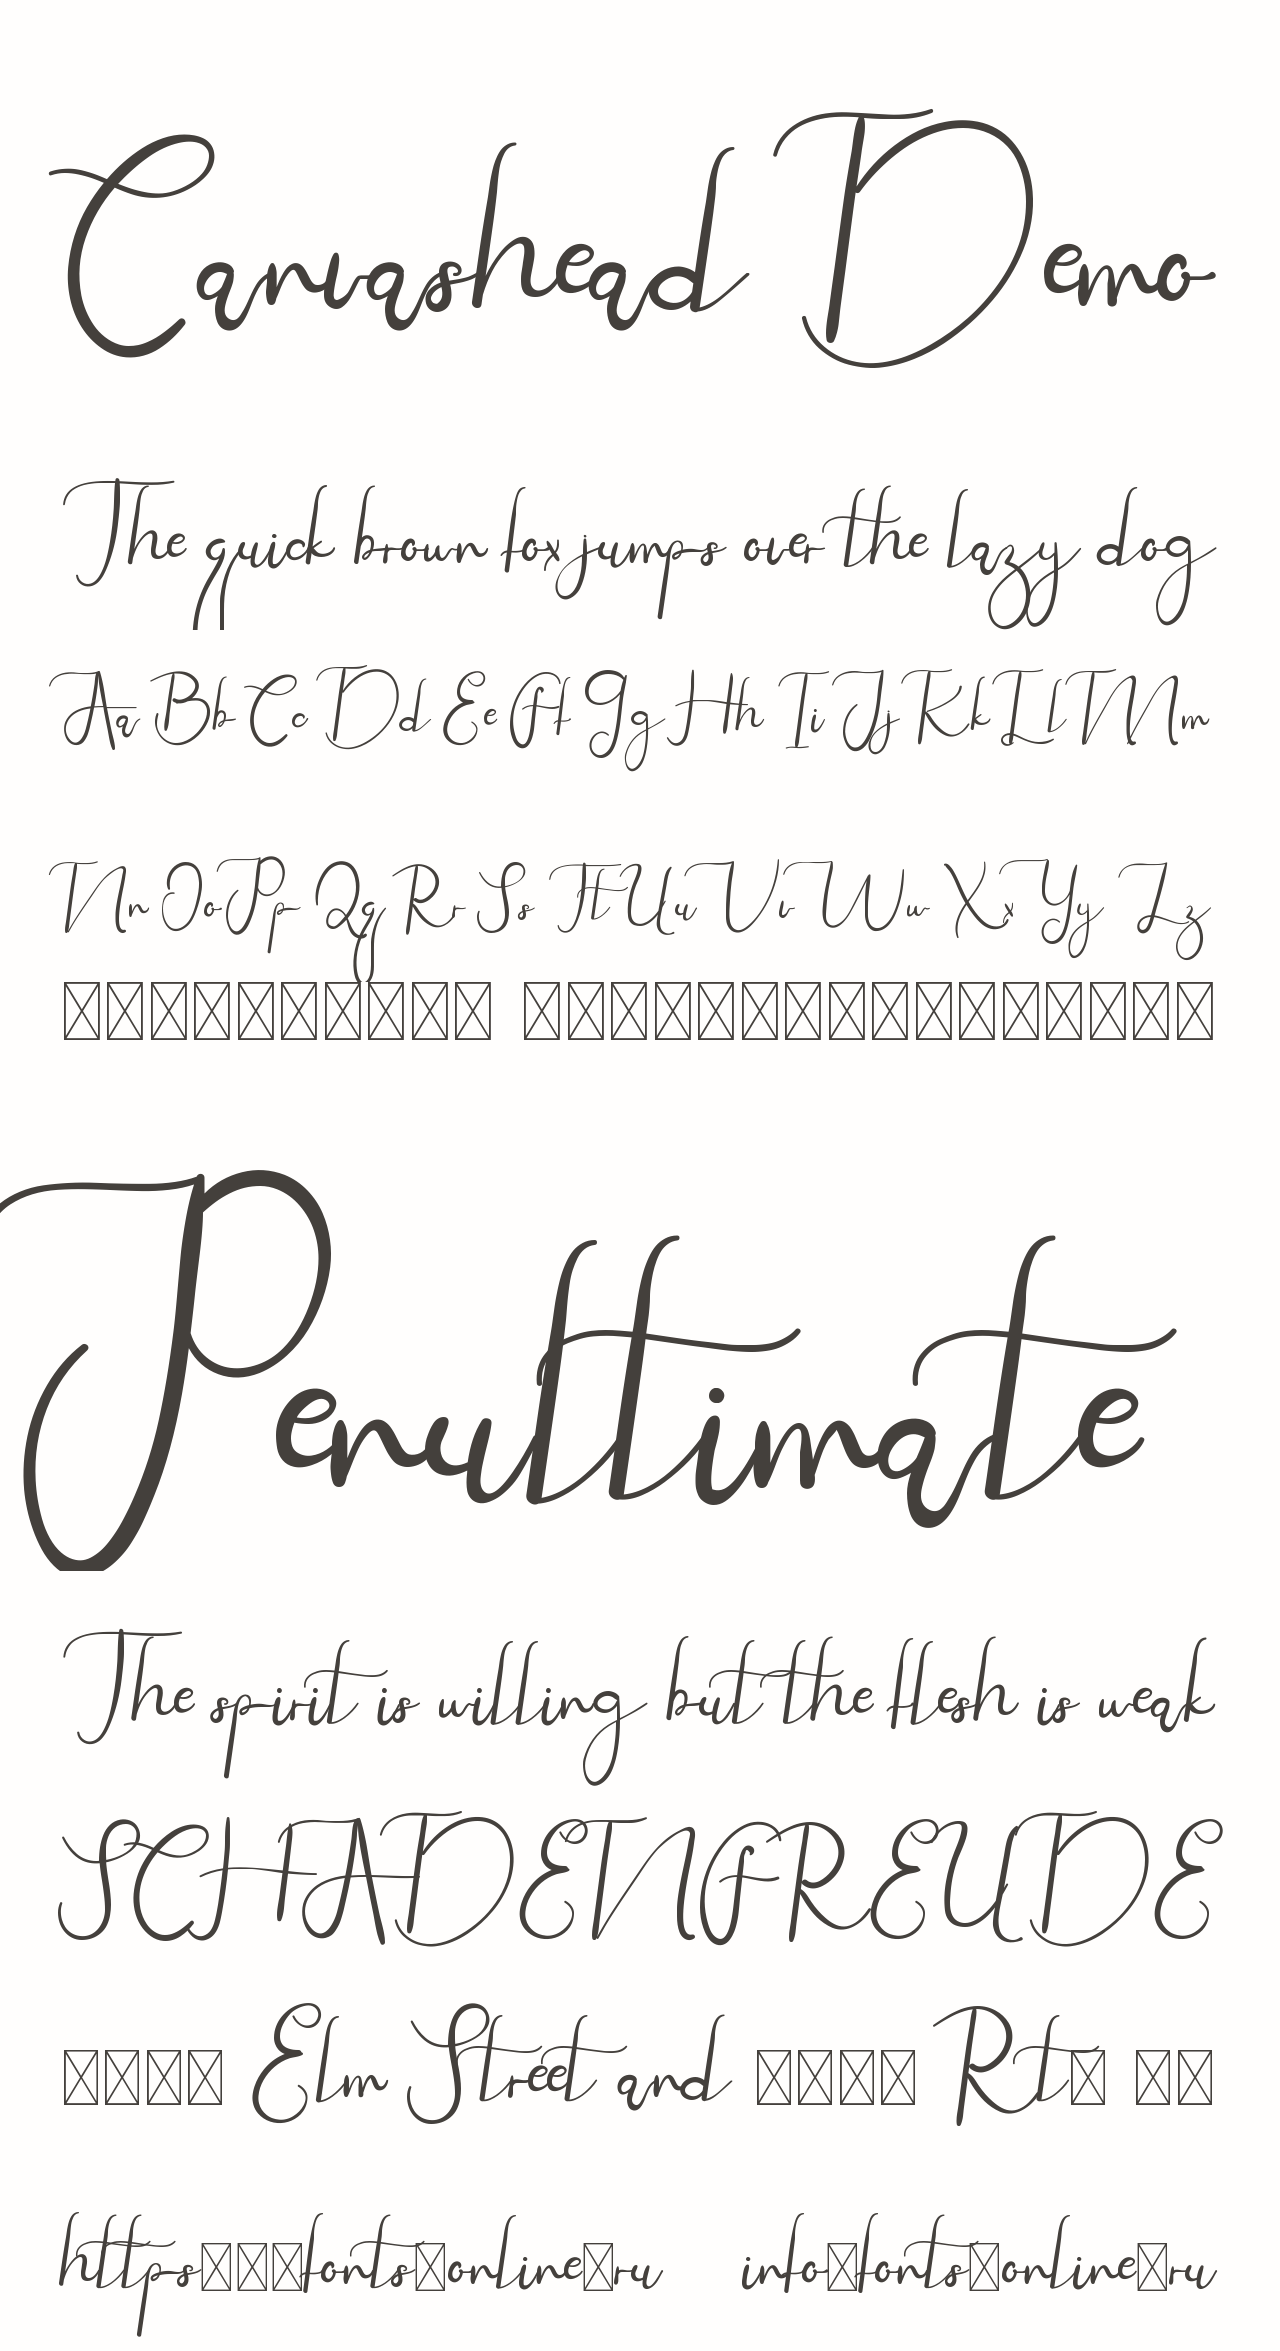 Canvashead Demo
The quick brown fox jumps over the lazy dog
Aa Bb Cc Dd Ee Ff Gg Hh Ii Jj Kk Ll Mm
Nn Oo Pp Qq Rr Ss Tt Uu Vv Ww Xx Yy Zz
Penultimate
The spirit is willing but the flesh is weak
SCHADENFREUDE
Elm Street and Rt
https fonts online ru info fonts online ru